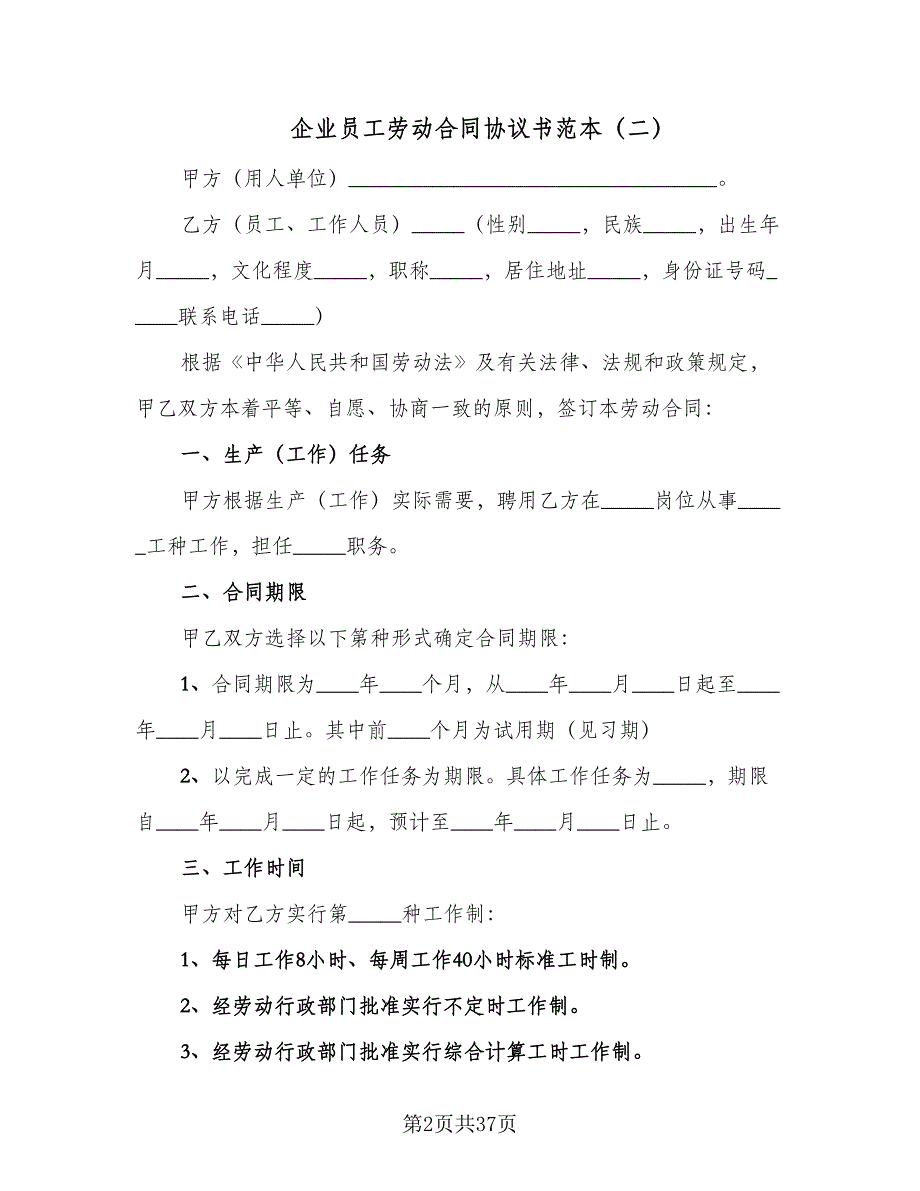 企业员工劳动合同协议书范本（二）
甲方（用人单位）___________________________________。
乙方（员工、工作人员）_____（性别_____，民族_____，出生年
月_____，文化程度_____，职称_____，居住地址_____，身份证号码_
____联系电话_____)
根据《中华人民共和国劳动法》及有关法律、法规和政策规定，
甲乙双方本着平等、自愿、协商一致的原则，签订本劳动合同：
一、生产（工作）任务
甲方根据生产（工作）实际需要，聘用乙方在_____岗位从事____
_工种工作，担任_____职务。
二、合同期限
甲乙双方选择以下第种形式确定合同期限：
1、合同期限为____年____个月，从____年____月____日起至____
年____月____日止。其中前____个月为试用期（见习期）
2、以完成一定的工作任务为期限。具体工作任务为_____，期限
自____年____月____日起，预计至____年____月____日止。
三、工作时间
甲方对乙方实行第_____种工作制：
1、每日工作8小时、每周工作40小时标准工时制。
2、经劳动行政部门批准实行不定时工作制。
3、经劳动行政部门批准实行综合计算工时工作制。
第2页共37页